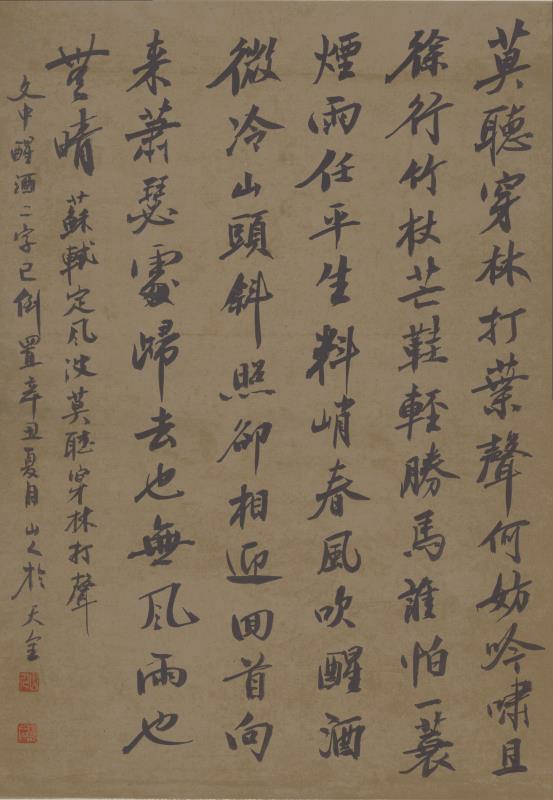 莫聽穿林打葉聲何妨吟嘯且
徐行竹杖芒鞋輕勝馬誰怕一蓑
煙雨任平生料峭春風吹醒酒
微冷山頭斜照卻相迎回首向
来蕭瑟處歸去也無风雨也
無晴 蘇軾定风波莫聽穿林打聲
文中醒酒二字已倒置辛丑夏月山人於天金